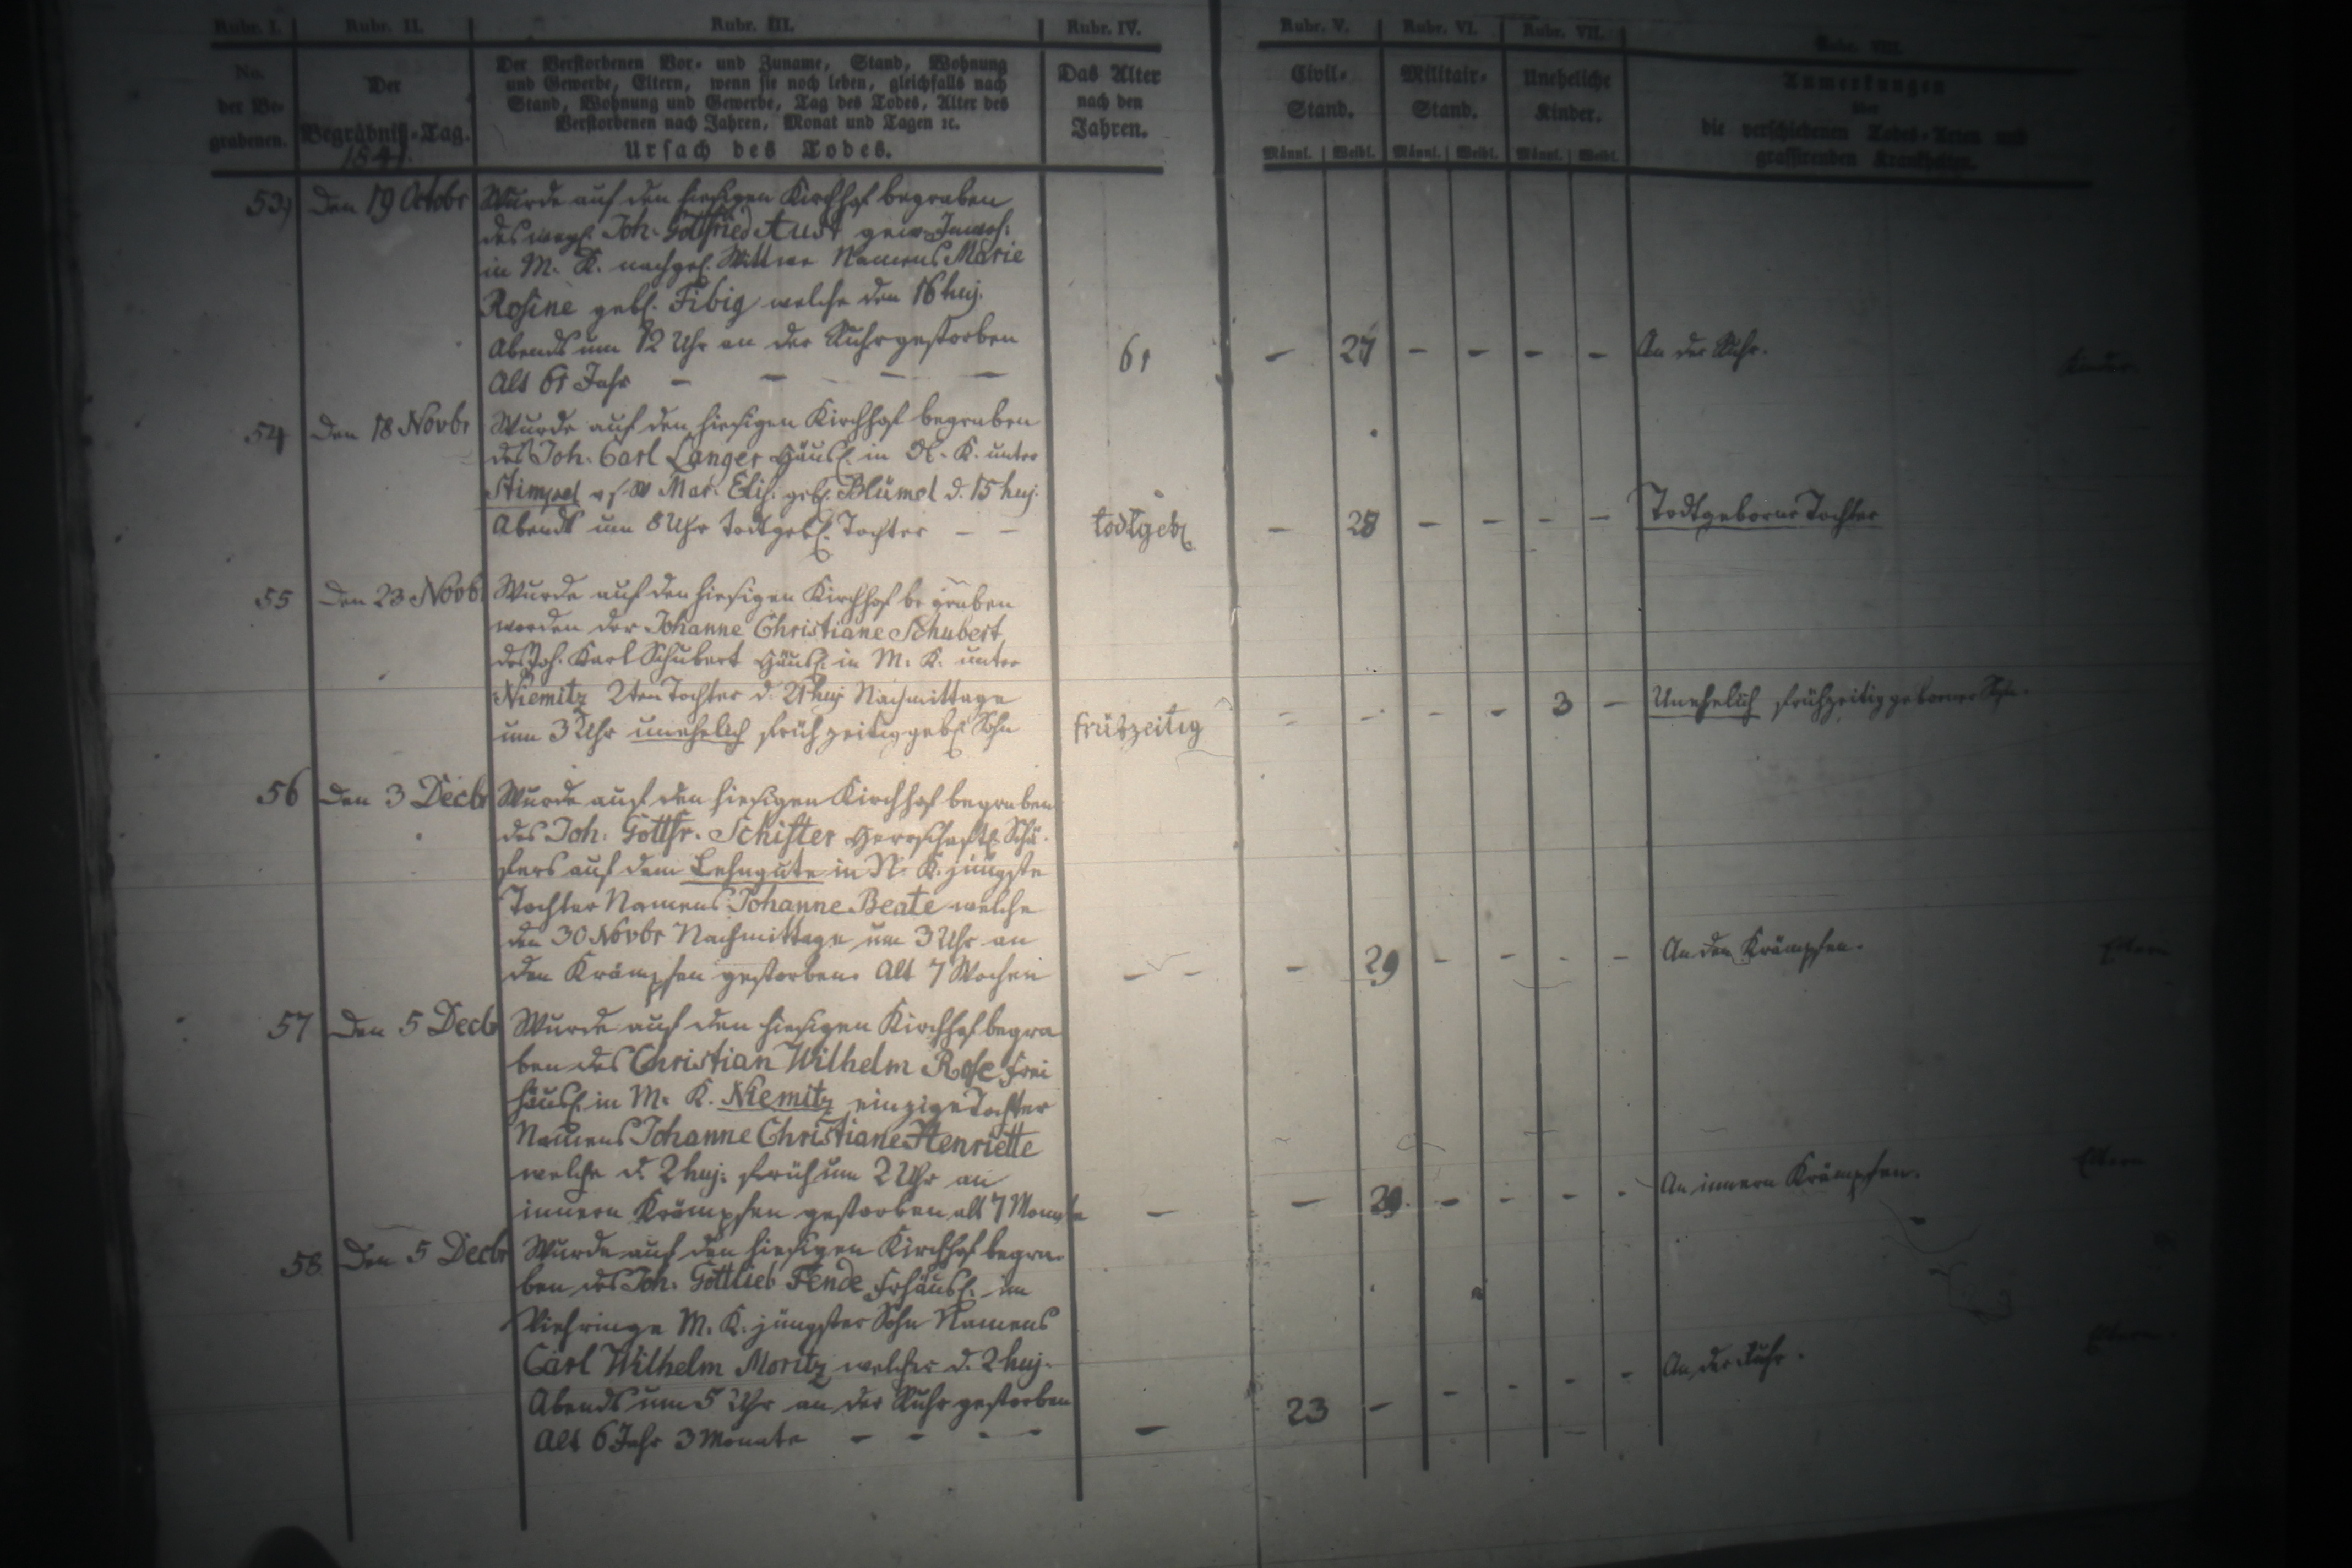 Rubr. I. Rubr. II. Rubr. III. Rubr. IV. Rubr. V. Rubr. VI. Rubr. VII. Rubr. VIII.
No. der Be- grabenen.
Der Begräbniß-Tag.
1841.
Der Verstorbenen Vor- und Zuname, Stand, Wohnung
und Gewerbe, Eltern, wenn sie noch leben, gleichfalls nach
Stand, Wohnung und Gewerbe, Tag des Todes, Alter des
Verstorbenen nach Jahren, Monat und Tagen ꝛc.
Ursach des Todes.
Das Alter nach den Jahren.
Civil- Stand.
Militair- Stand.
Uneheliche Kinder.
Männl. Weibl. Männl. Weibl. Männl. Weibl.
Anmerkungen
über
die verschiedenen Todes-Arten und
grassirenden Krankheiten.
53) Den 19 Octobr Wurde auf den hiesigen Kirchhof begraben
des Joh. Gottfried Aust gew. Inwoh:
in M. K. nachgel. Wittwe Namens Marie
Rosine geb. Fibig welche den 16 huj.
Abends um 12 Uhr an der Ruhr gestorben
Alt 61 Jahr - - - - 61 - 27 - - - - An der Ruhr.
54 Den 18 Novbr Wurde auf den hiesigen Kirchhof begraben
des Joh. Carl Langer Häusl. in K. unter
Stimpel Mar. Elis. geb. Blümel d. 15 huj.
Abends um 8 Uhr todtgeb. Tochter - - todtgeb. - 28 - - - - Todtgeborne Tochter
55 Den 23 Novb Wurde auf den hiesigen Kirchhof begraben
worden der Johanne Christiane Schubert,
des Joh. Karl Schubert Häusl. in M. K. unter
Niemitz 2ten Tochter d. 21 huj Nachmittags
um 3 Uhr unehelich frühzeitig geb. Sohn frühzeitig - - - - 3 - Unehelich frühzeitig geborner Sohn.
56 Den 3 Decbr Wurde auf den hiesigen Kirchhof begraben
des Joh. Gottfr. Schifter Herrschaftl. Schä-
fers auf dem Lehngute in N. K. jüngste
Tochter Namens Johanne Beate welche
den 30 Novbr Nachmittags um 3 Uhr an
den Krämpfen gestorben. Alt 7 Wochen - - - 29 - - - - An den Krämpfen. Eltern
57 Den 5 Decb Wurde auf den hiesigen Kirchhof begra
ben des Christian Wilhelm Rose Frei
häusl. in M. K. Niemitz einzige Tochter
Namens Johanne Christiane Henriette
welche d. 2 huj. früh um 2 Uhr an
innern Krämpfen gestorben alt 7 Monate - - - - - - An innern Krämpfen. Eltern
58 Den 5 Decbr Wurde auf den hiesigen Kirchhof begra-
ben des Joh. Gottlieb Fende Frhäusl. im
Viehringe M. K. jüngster Sohn Namens
Carl Wilhelm Moritz welcher d. 2 huj.
Abends um 5 Uhr an der Ruhr gestorben
Alt 6 Jahr 3 Monate - - - - - 23 - - - - - An der Ruhr. Eltern